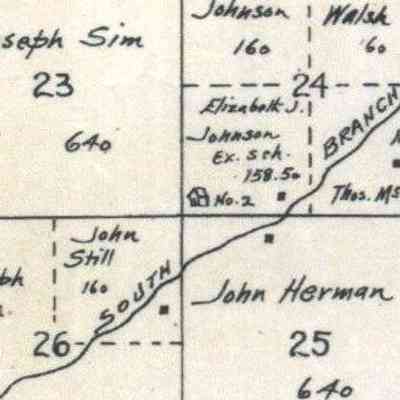 Johnson
160
Walsh
160
seph Sim
23
640
24
Elizabeth J.
Johnson
Ex. Sch.
158.50
No. 2
BRANCH
Thos. Ms
John
Still
160
SOUTH
26
John Herman
25
640